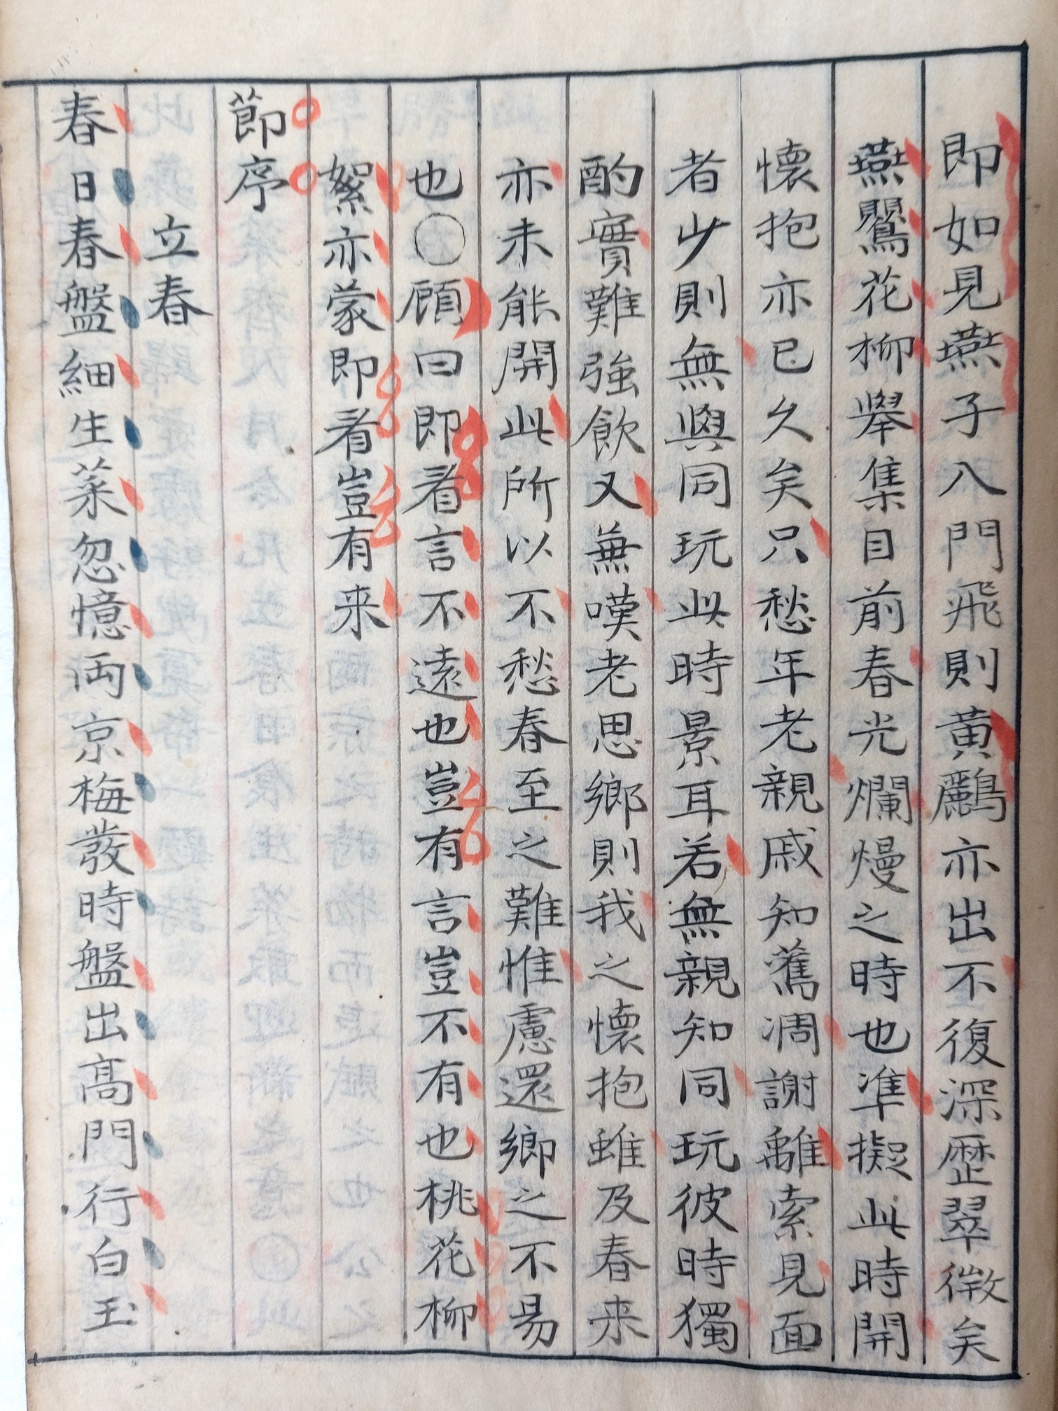 即如見燕子入門飛則黄鸝亦出不復深歴翠微矣
燕鸎花柳舉集目前春光爛熳之時也準擬此時開
懐抱亦已久矣只愁年老親戚知舊凋謝離索見面
者少則無與同玩此時景耳若無親知同玩彼時獨
酌實難強飲又無嘆老思郷則我之懐抱雖及春来
亦未能開此所以不愁春至之難惟慮還郷之不易
也〇頋曰即看言不遠也豈有言豈不有也桃花柳
絮亦蒙即看豈有来
節序
立春
春日春盤細生菜忽憶両京梅發時盤出高門行白玉